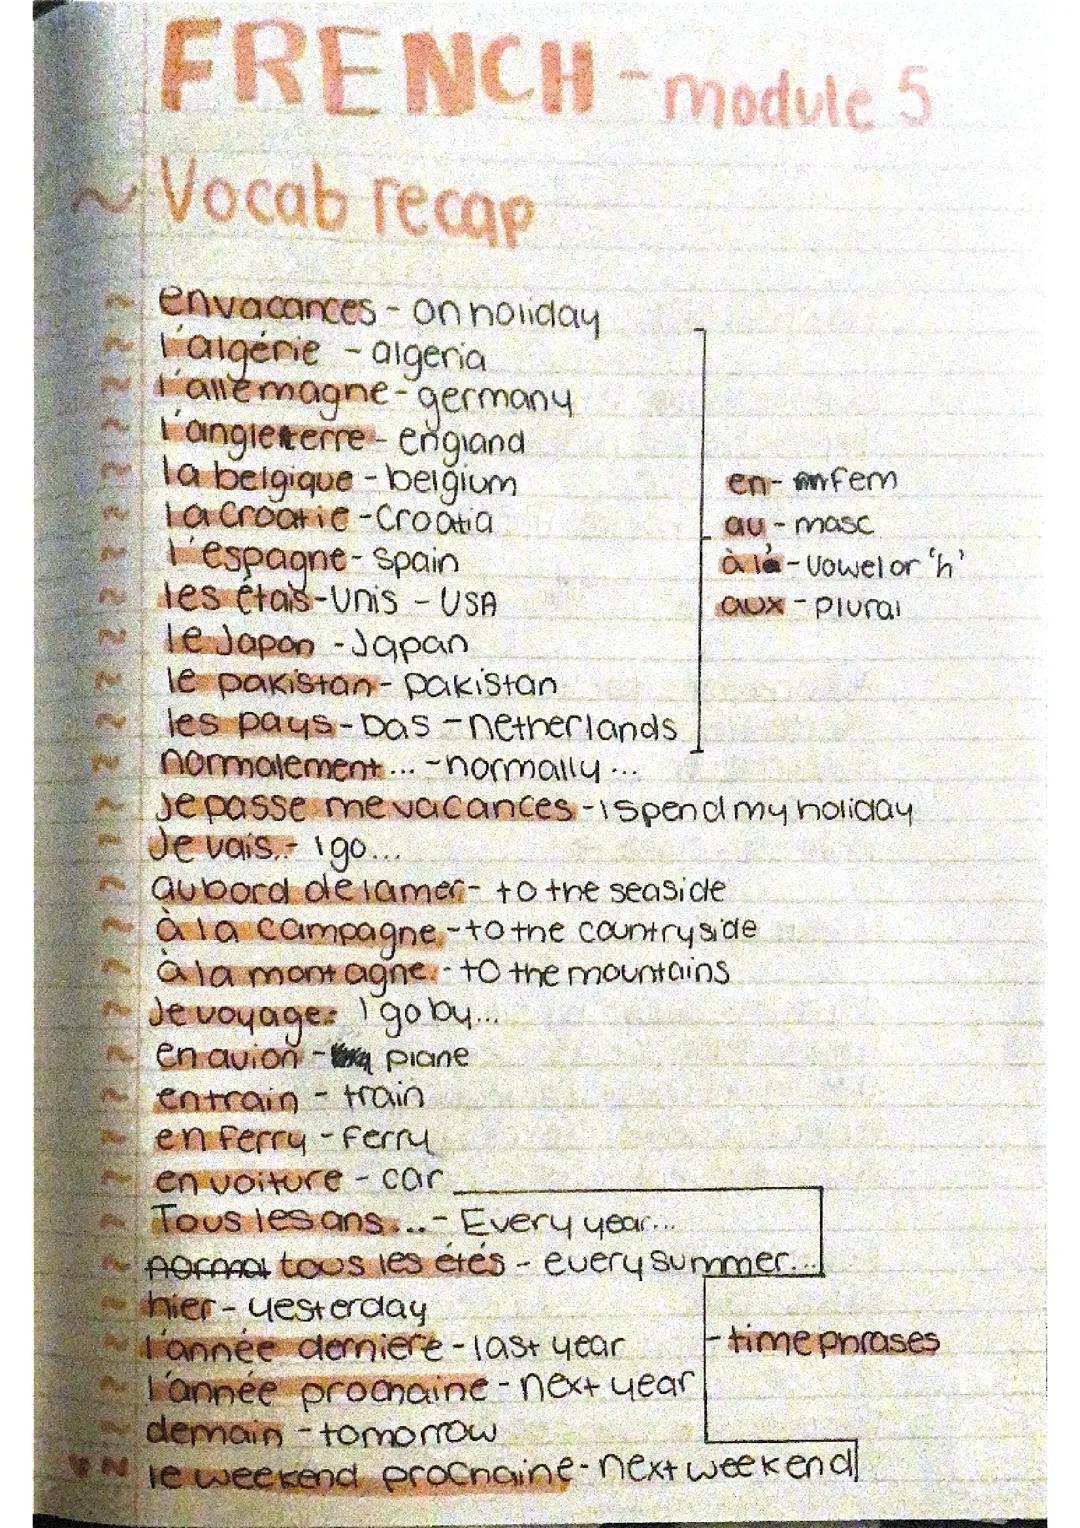 FRENCH - module 5
~ Vocab recap
~ en vacances - on holiday
~ l'algérie - algeria
~ l'allemagne - germany
~ l'angleterre - england
~ la belgique - belgium
~ la Croatie - Croatia
~ l'espagne - spain
~ les étais-Unis - USA
~ le Japon - Japan
~ le pakistan - pakistan
~ les pays-bas - netherlands
en - fem
au - masc
à la - vowel or 'h'
aux - plural
~ normalement... - normally...
~ Je passe me vacances - I spend my holiday
~ Je vais.. - I go...
~ au bord de la mer - to the seaside
~ à la campagne - to the countryside
~ à la montagne. - to the mountains
~ Je voyage: I go by...
~ en avion - plane
~ en train - train
~ en ferry - ferry
~ en voiture - car
~ Tous les ans... - Every year...
~ normal tous les étés - every summer...
~ hier - yesterday
~ l'année derniere - last year
~ l'année prochaine - next year
~ demain - tomorrow
~ le weekend prochaine - next weekend
- time phrases